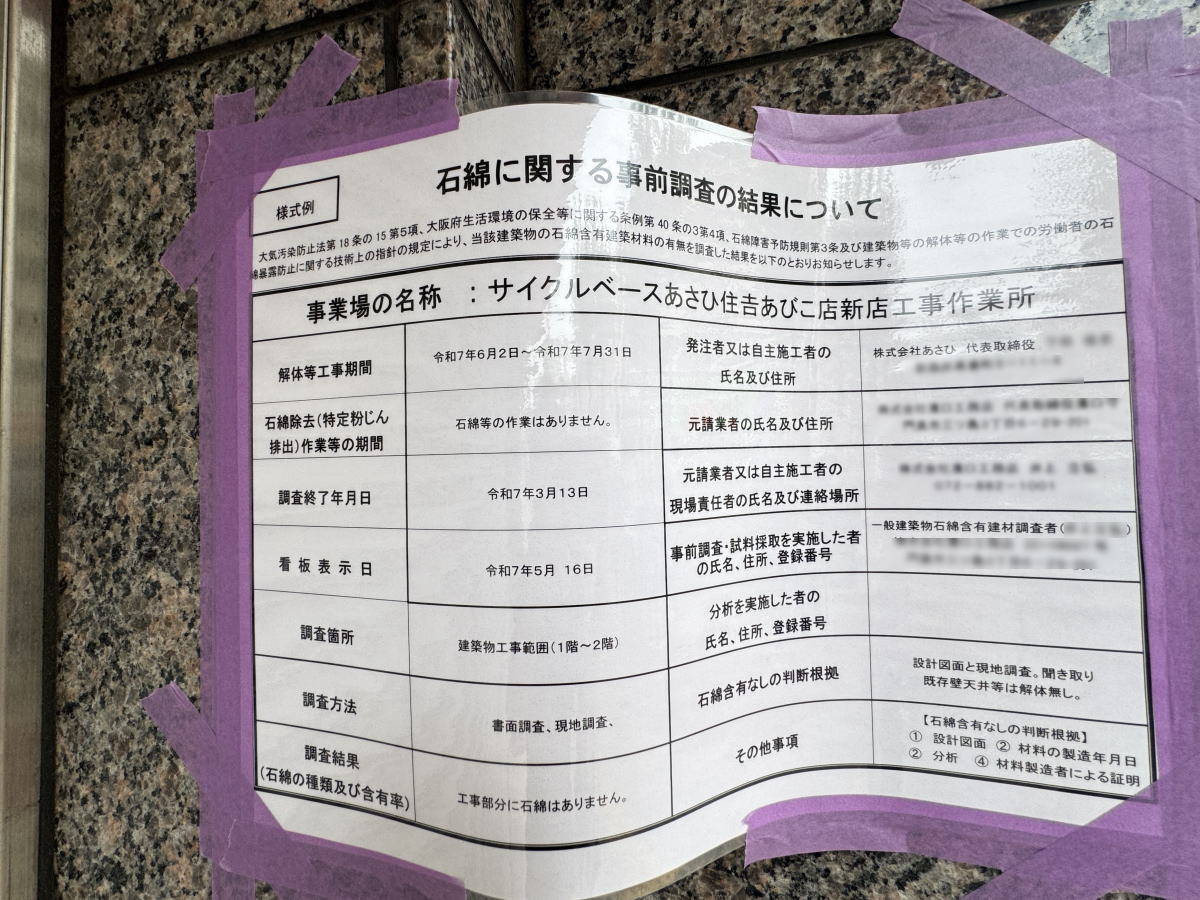 石綿に関する事前調査の結果について
様式例
大気汚染防止法第18条の15第5項、大阪府生活環境の保全等に関する条例第40条の3第4項、石綿障害予防規則第3条及び建築物等の解体等の作業での労働者の石
綿暴露防止に関する技術上の指針の規定により、当該建築物の石綿含有建築材料の有無を調査した結果を以下のとおりお知らせします。
事業場の名称 : サイクルベースあさひ住吉あびこ店新店工事作業所
解体等工事期間
令和7年6月2日～令和7年7月31日
発注者又は自主施工者の
氏名及び住所
株式会社あさひ 代表取締役
石綿除去(特定粉じん
排出)作業等の期間
石綿等の作業はありません。
元請業者の氏名及び住所
調査終了年月日
令和7年3月13日
元請業者又は自主施工者の
現場責任者の氏名及び連絡場所
看板表示日
令和7年5月 16日
事前調査・試料採取を実施した者
の氏名、住所、登録番号
一般建築物石綿含有建材調査者( )
調査箇所
建築物工事範囲(1階～2階)
分析を実施した者の
氏名、住所、登録番号
調査方法
書面調査、現地調査、
石綿含有なしの判断根拠
設計図面と現地調査。聞き取り
既存壁天井等は解体無し。
調査結果
(石綿の種類及び含有率)
工事部分に石綿はありません。
その他事項
【石綿含有なしの判断根拠】
① 設計図面 ② 材料の製造年月日
② 分析 ④ 材料製造者による証明